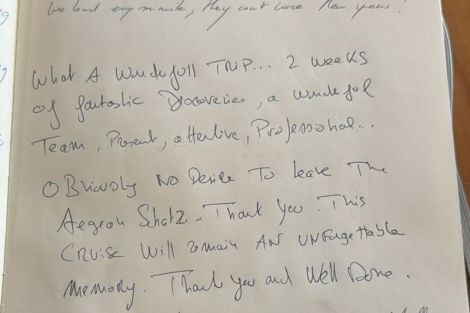 every minute, they can't
What A Wonderfull TRIP... 2 weeks
of fantastic Discoveries, a wonderful
Team, Present, attentive, Professional...
OBviously No Desire To Leave The
Aegean Schatz. Thank you. This
CRUISE Will remain AN UNFORgettable
memory. Thank you and Well Done.